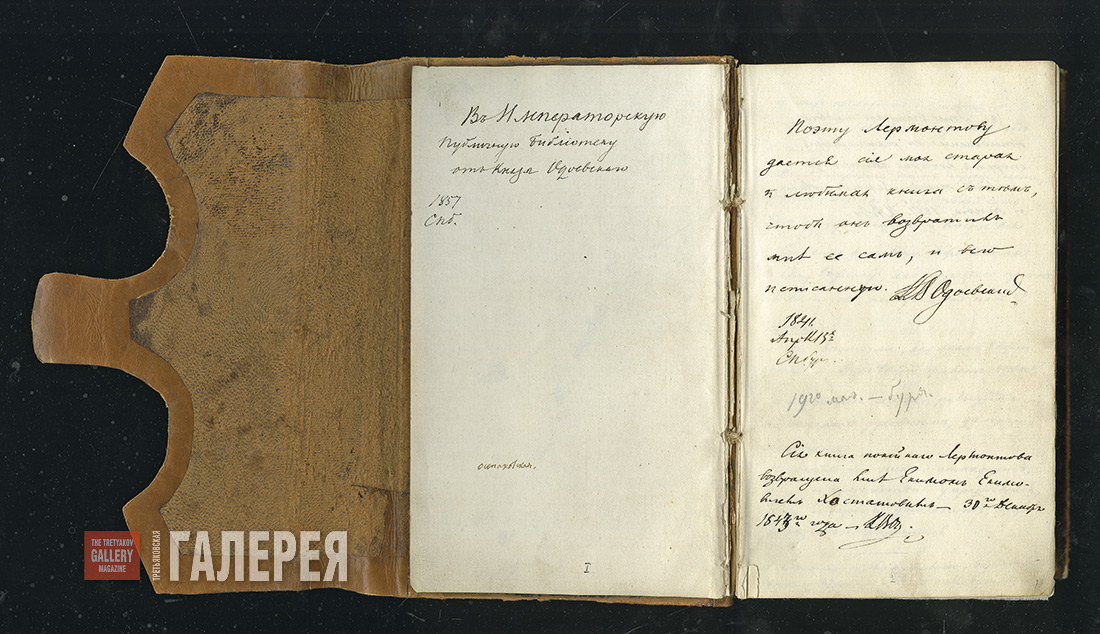 Въ Императорскую
Публичную библіотеку
отъ Князя Одоевскаго
1857
Спб.
I
Поэту Лермонтову
дается сія моя старая
и любимая книга съ тѣмъ,
чтобы онъ возвратилъ
мнѣ ее самъ, и всю
исписанную. К В Одоевскій
1841.
Апреля 13е
СПбург.
19го мая. — буря.
Сія книга покойнаго Лермонтова
возвращена мнѣ Екимомъ Екимо-
вичемъ Хастатовымъ — 30го Декабря
1843го года —
THE TRETYAKOV
GALLERY
MAGAZINE
ТРЕТЬЯКОВСКАЯ
ГАЛЕРЕЯ